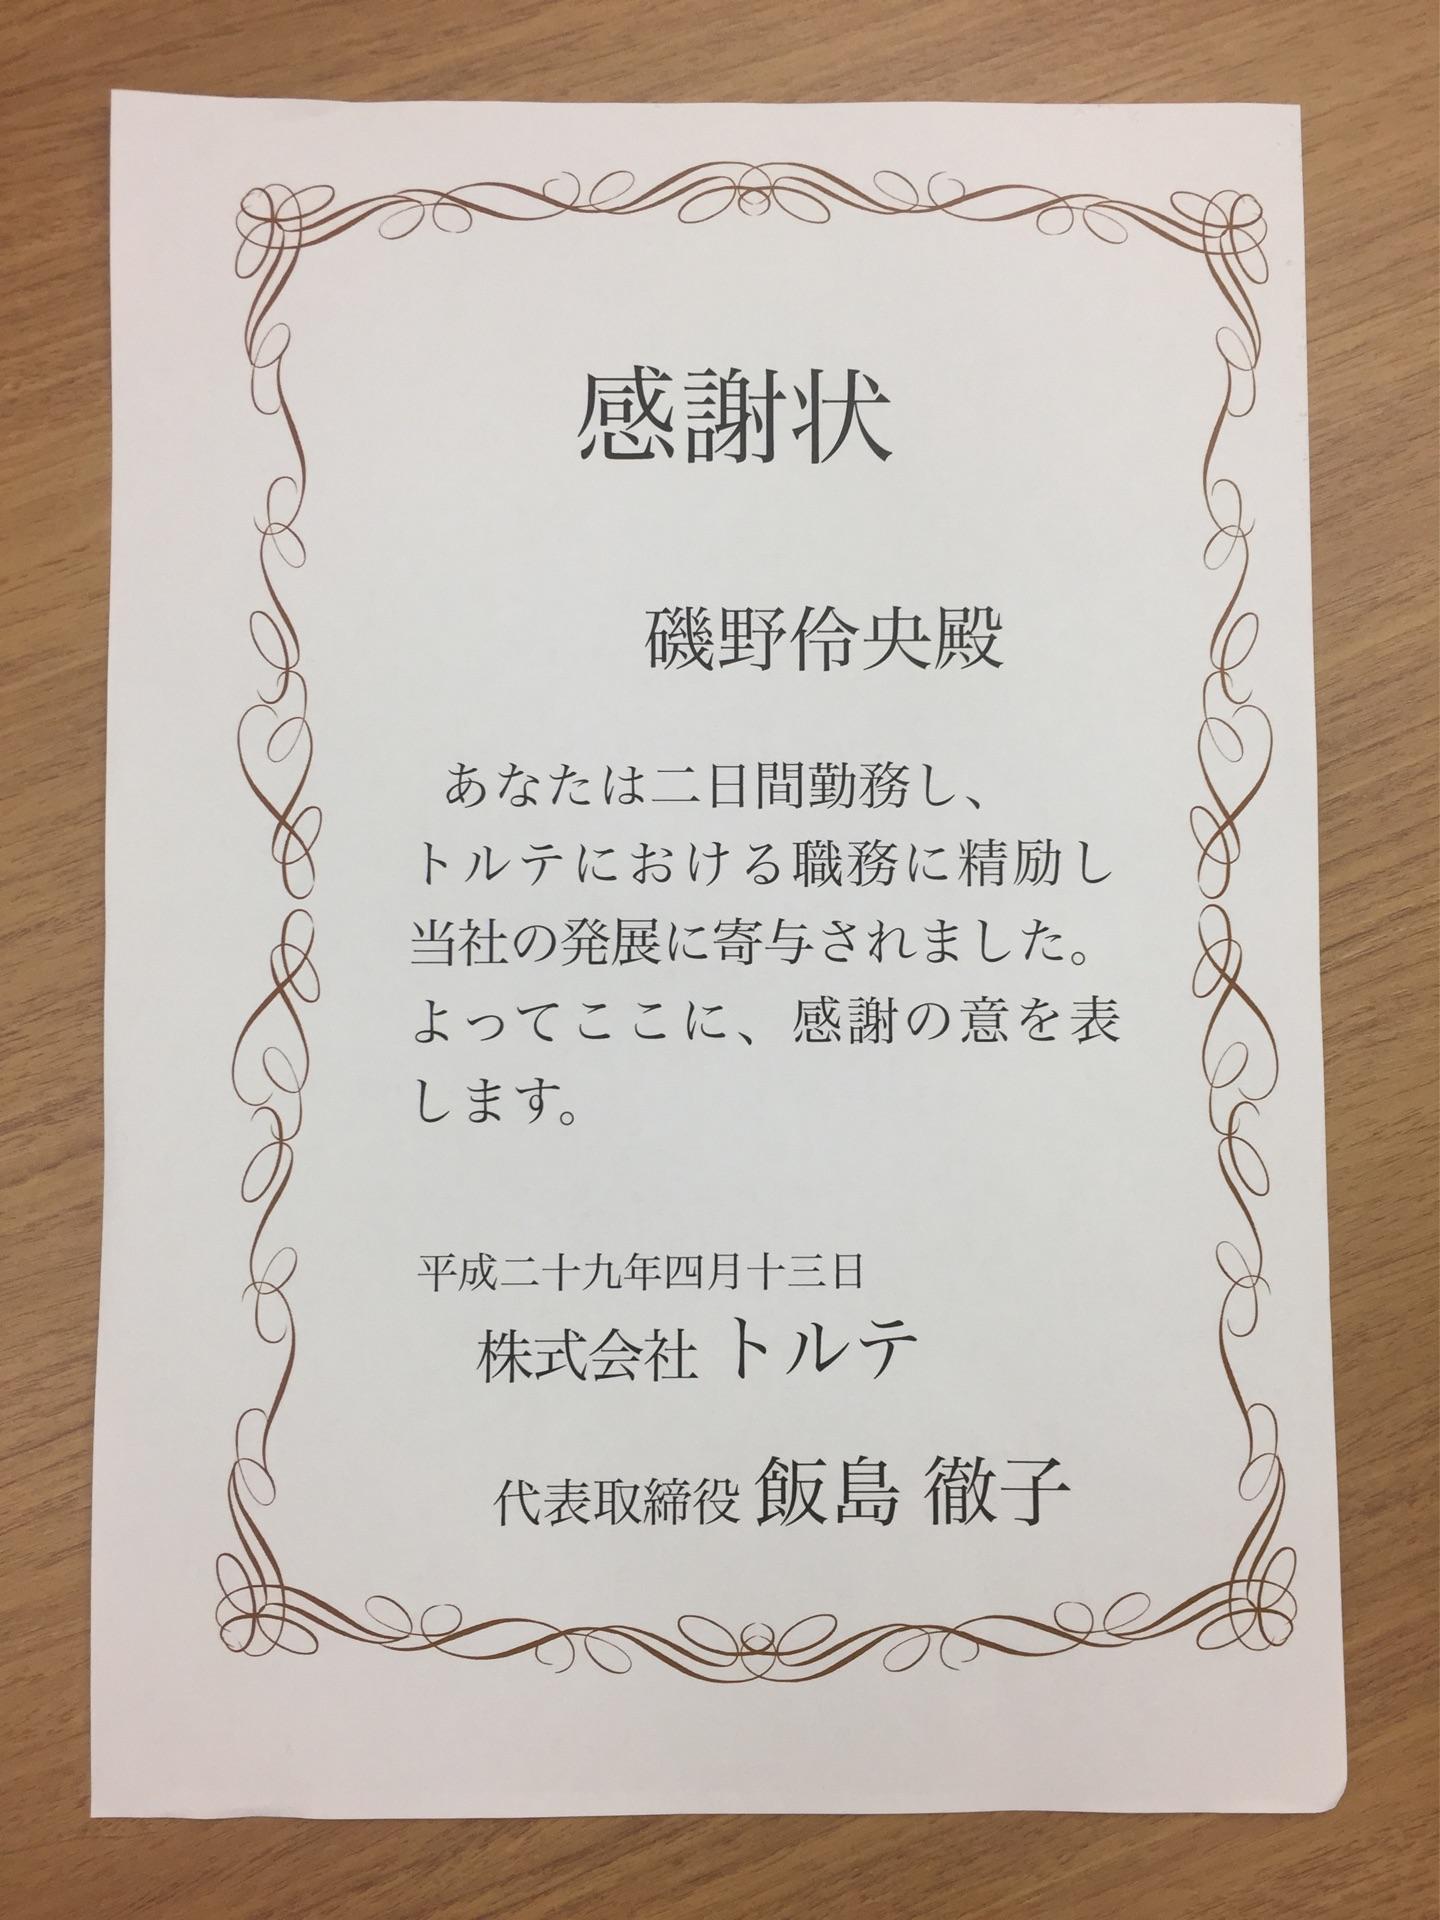 感謝状
磯野伶央殿
あなたは二日間勤務し、
トルテにおける職務に精励し
当社の発展に寄与されました。
よってここに、感謝の意を表
します。
平成二十九年四月十三日
株式会社トルテ
代表取締役 飯島 徹子